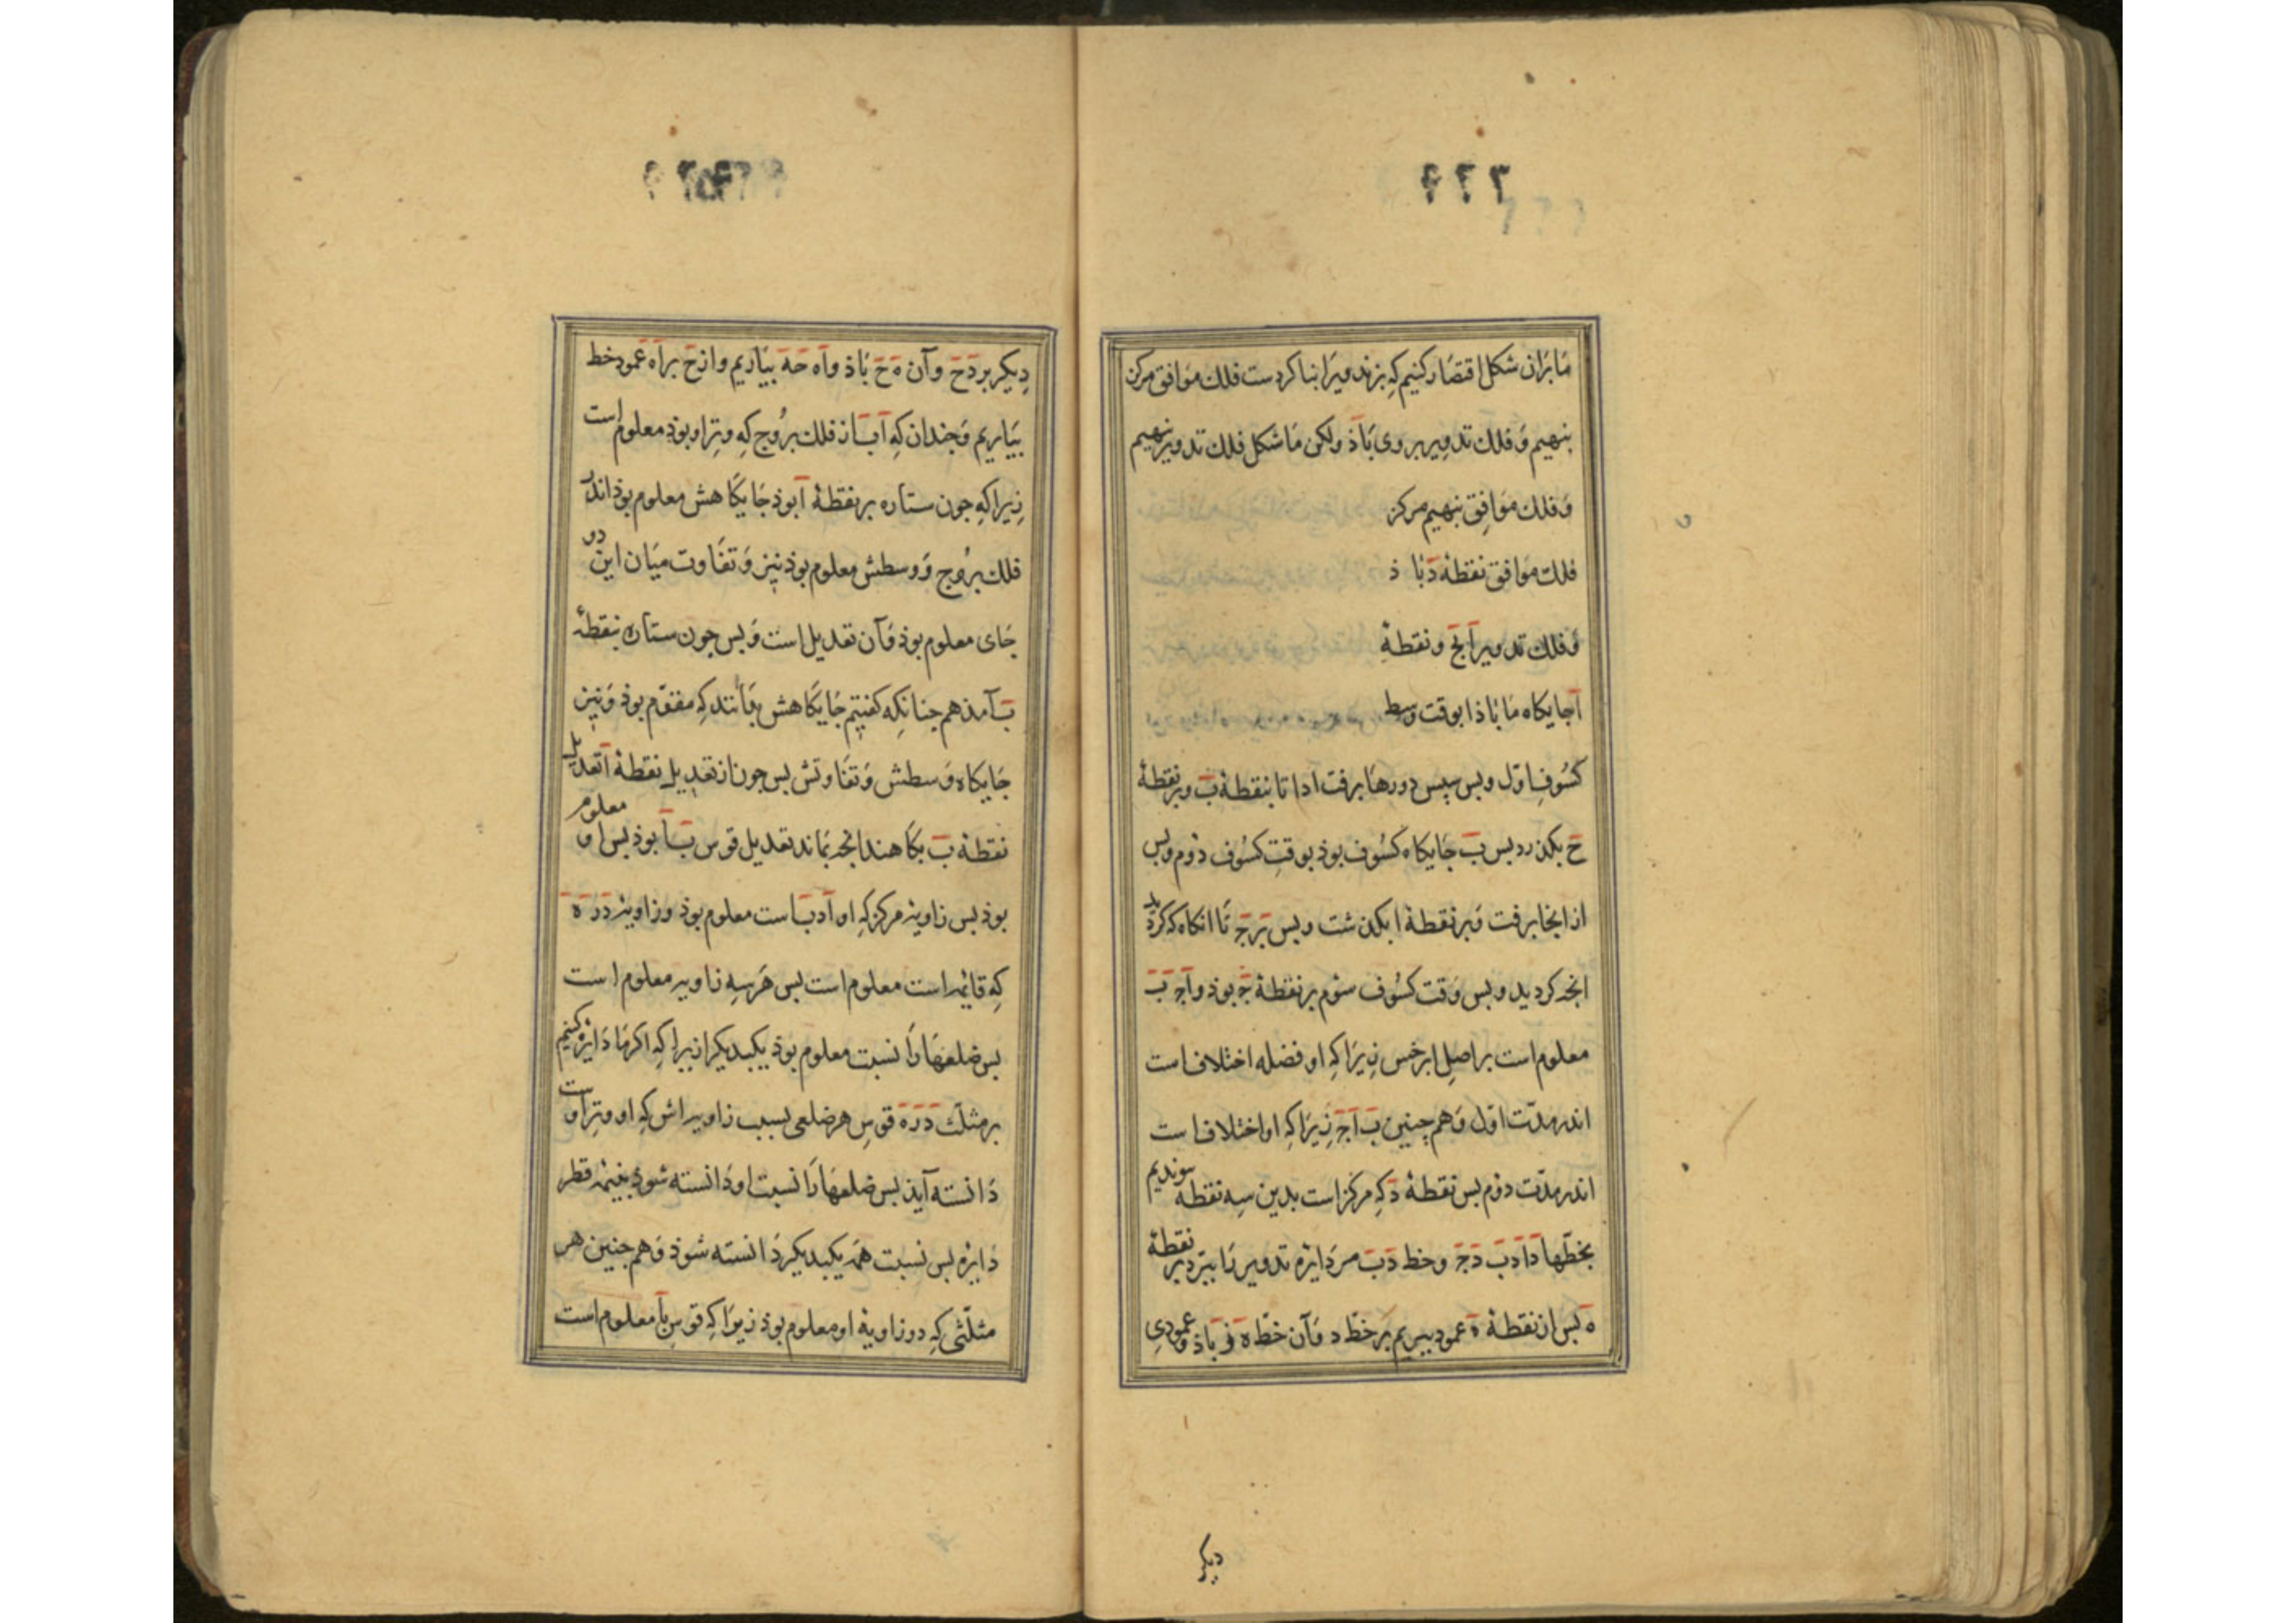 ما بران شکل اقتصار کنیم که بزند ویرا بنا کردست فلك موافق مرکز
بنهیم و فلك تدویر بر وی باذ ولکن ما شکل فلك تدویر بنهیم
و فلك موافق بنهیم مرکز
فلك موافق نقطهٔ د باذ
و فلك تدویر ابج و نقطهٔ
آ جایکاه ما باذا بوقت وسط
کسوف اول وبس سپس دورها برفت ادا تا بنقطهٔ ب وبر نقطهٔ
ح بکذرد بس ب جایکاه کسوف بوذ بوقت کسوف دوم وبس
از انجا برفت و بر نقطهٔ ا بکذشت وبس بر ج تا انکاه که کرد
انجه کردید وبس وقت کسوف سوم بر نقطهٔ ج بوذ و آج ب
معلوم است بر اصل ابرخس زیرا که او فضله اختلاف است
اندر مدت اول و هم چنین ب آج زیرا که او اختلاف است
اندر مدت دوم بس نقطهٔ د که مرکز است بدین سه نقطه سوندیم
بخطها دا دب دج وخط دب مر دایره تدویر را ببرد بر نقطهٔ
ه بس از نقطهٔ ه عمود ببریم بر خط د و آن خط ه ز باذ و عمودی
دیکر
دیکر بر دح و آن ه ح باذ و اه حه بیاریم و از ح بر اه عمود خط
بیاریم و جندان که آب از فلك بروج که وتر او بوذ معلوم است
زیرا که جون ستاره بر نقطهٔ آ بوذ جایکاهش معلوم بوذ اندر
فلك بروج و وسطش معلوم بوذ نیز و تفاوت میان این دو
جای معلوم بوذ و آن تعدیل است و بس جون ستاره بنقطهٔ
ب آمد هم جنانکه کفتیم جایکاهش بدانند که مقوم بوذ و نیز
جایکاه وسطش و تفاوتش بس جون از تعدیل نقطهٔ آ تعدیل
نقطهٔ ب بکاهند انجه بماند تعدیل قوس ب آ بوذ بس او معلوم
بوذ بس زاویهٔ مرکز که او آدب است معلوم بوذ و زاویهٔ د ز ه
که قائمه است معلوم است بس هر سه زاویه معلوم است
بس ضلعها را نسبت معلوم بوذ یکبدیکر ازیرا که اکر ما دایره کنیم
بر مثلث د ز ه قوس هر ضلعی بسبب زاویه اش که او وتر او ست
دانسته آید بس ضلعها را نسبت او دانسته شوذ بنیمهٔ قطر
دایره بس نسبت همه یکبدیکر دانسته شوذ و هم جنین هر
مثلثی که دو زاویهٔ او معلوم بوذ زیرا که قوس با معلوم است